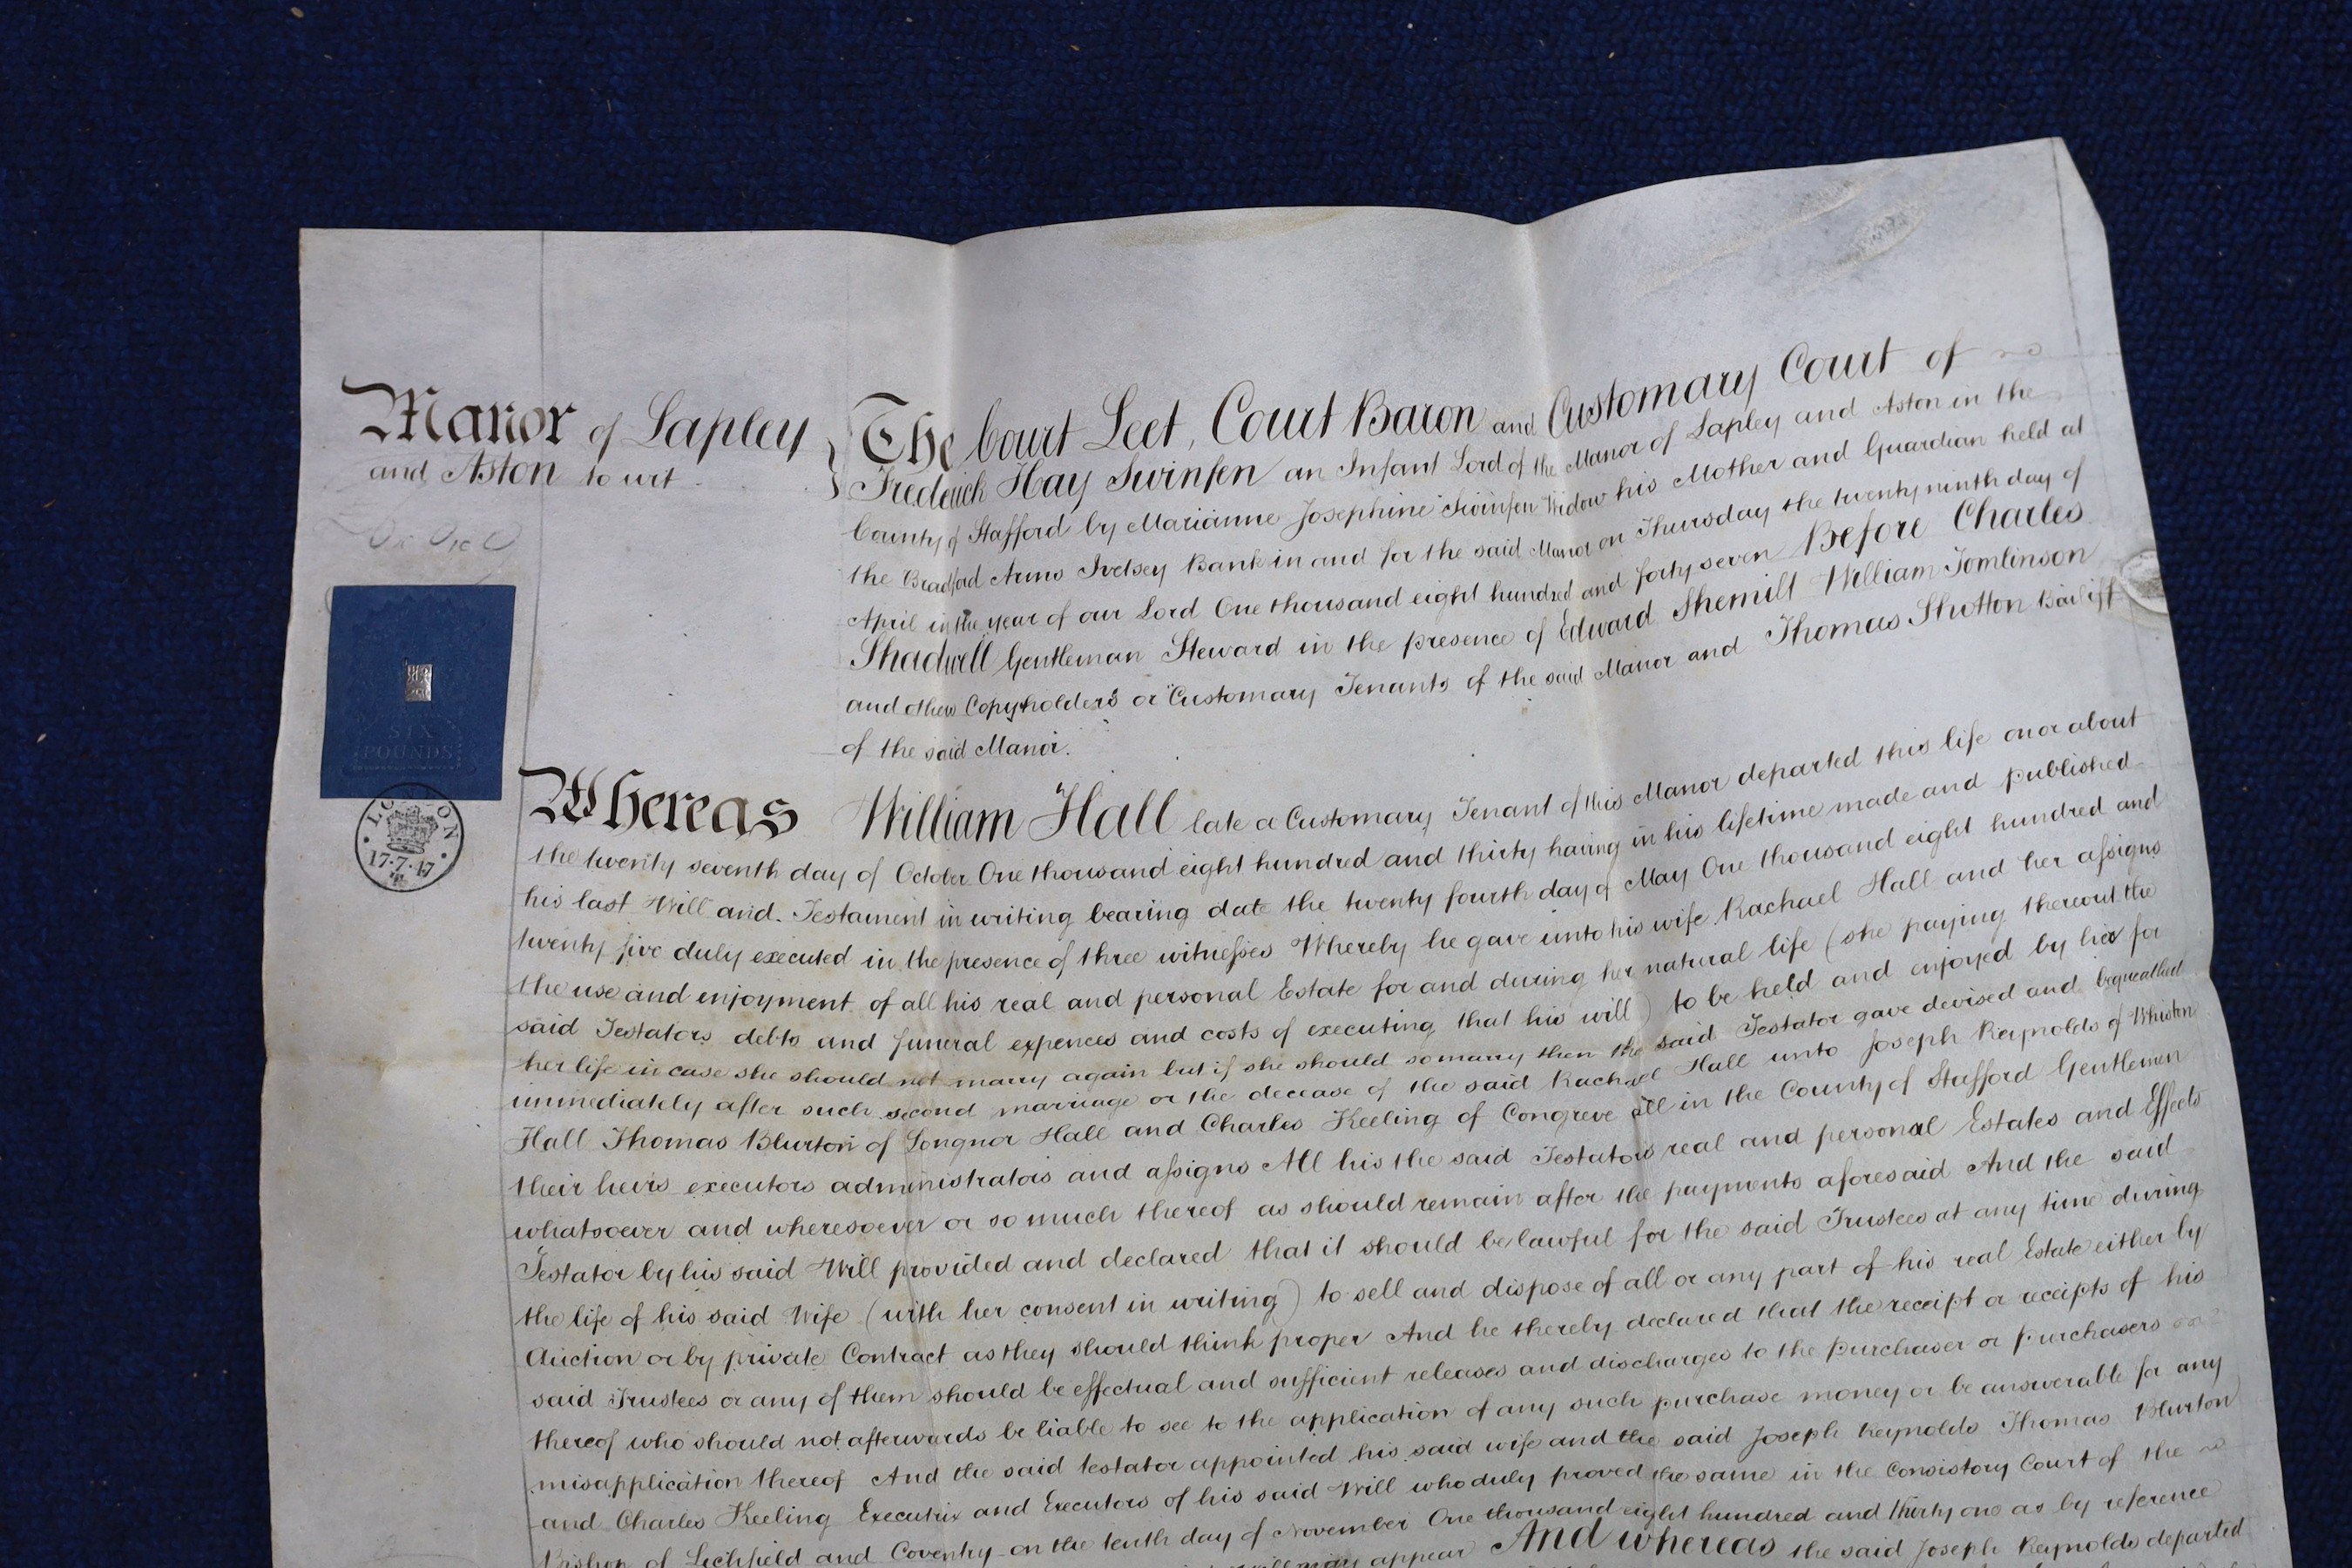 Manor of Lapley
and Aston to wit
The Court Leet, Court Baron and Customary Court of
Frederick Hay Swinfen an Infant Lord of the Manor of Lapley and Aston in the
County of Stafford by Marianne Josephine Swinfen Widow his Mother and Guardian held at
the Bradford Arms Ivetsey Bank in and for the said Manor on Thursday the twenty ninth day of
April in the year of our Lord One thousand eight hundred and forty seven Before Charles
Shadwell Gentleman Steward in the presence of Edward Shemilt William Tomlinson
and other Copyholders or Customary Tenants of the said Manor and Thomas Shutton Bailiff
of the said Manor.
SIX
POUNDS
LONDON
17·7·47
Whereas William Hall late a Customary Tenant of this Manor departed this life on or about
the twenty seventh day of October One thousand eight hundred and thirty having in his lifetime made and published
his last Will and Testament in writing bearing date the twenty fourth day of May One thousand eight hundred and
twenty five duly executed in the presence of three witnesses Whereby he gave unto his wife Rachael Hall and her assigns
the use and enjoyment of all his real and personal Estate for and during her natural life (she paying thereout the
said Testators debts and funeral expences and costs of executing that his will) to be held and enjoyed by her for
her life in case she should not marry again but if she should so marry then the said Testator gave devised and bequeathed
immediately after such second marriage or the decease of the said Rachael Hall unto Joseph Reynolds of Whiston
Hall Thomas Blurton of Longnor Hall and Charles Keeling of Congreve all in the County of Stafford Gentlemen
their heirs executors administrators and assigns All his the said Testators real and personal Estates and Effects
whatsoever and wheresoever or so much thereof as should remain after the payments aforesaid And the said
Testator by his said Will provided and declared that it should be lawful for the said Trustees at any time during
the life of his said Wife (with her consent in writing) to sell and dispose of all or any part of his real Estate either by
Auction or by private Contract as they should think proper And he thereby declared that the receipt or receipts of his
said Trustees or any of them should be effectual and sufficient releases and discharges to the purchaser or purchasers
thereof who should not afterwards be liable to see to the application of any such purchase money or be answerable for any
misapplication thereof And the said testator appointed his said wife and the said Joseph Reynolds Thomas Blurton
and Charles Keeling Executrix and Executors of his said Will who duly proved the same in the Consistory Court of the
Bishop of Lichfield and Coventry on the tenth day of November One thousand eight hundred and thirty one as by reference
may appear And whereas the said Joseph Reynolds departed